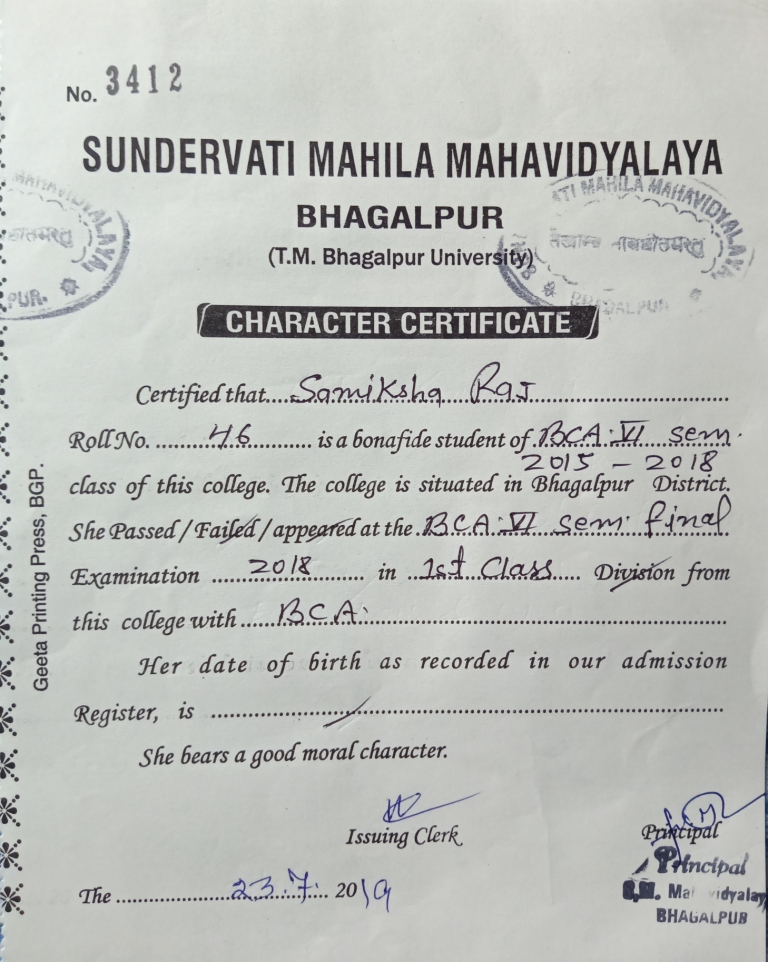 No. 3412
SUNDERVATI MAHILA MAHAVIDYALAYA
BHAGALPUR
(T.M. Bhagalpur University)
CHARACTER CERTIFICATE
Certified that....Samiksha Raj
Roll No. 46 is a bonafide student of BCA VI sem.
2015 - 2018
class of this college. The college is situated in Bhagalpur District.
She Passed / Failed / appeared at the BCA VI sem final
Examination 2018 in 1st Class Division from
this college with BCA.
Her date of birth as recorded in our admission
Register, is
She bears a good moral character.
Issuing Clerk
Principal
Principal
S.M. Mahavidyalay
BHAGALPUR
The 23.7. 2019
Geeta Printing Press, BGP.
MAHAVIDYALAYA
PUR.
ATI MAHILA MAHAVIDYALAYA
BHAGALPUR